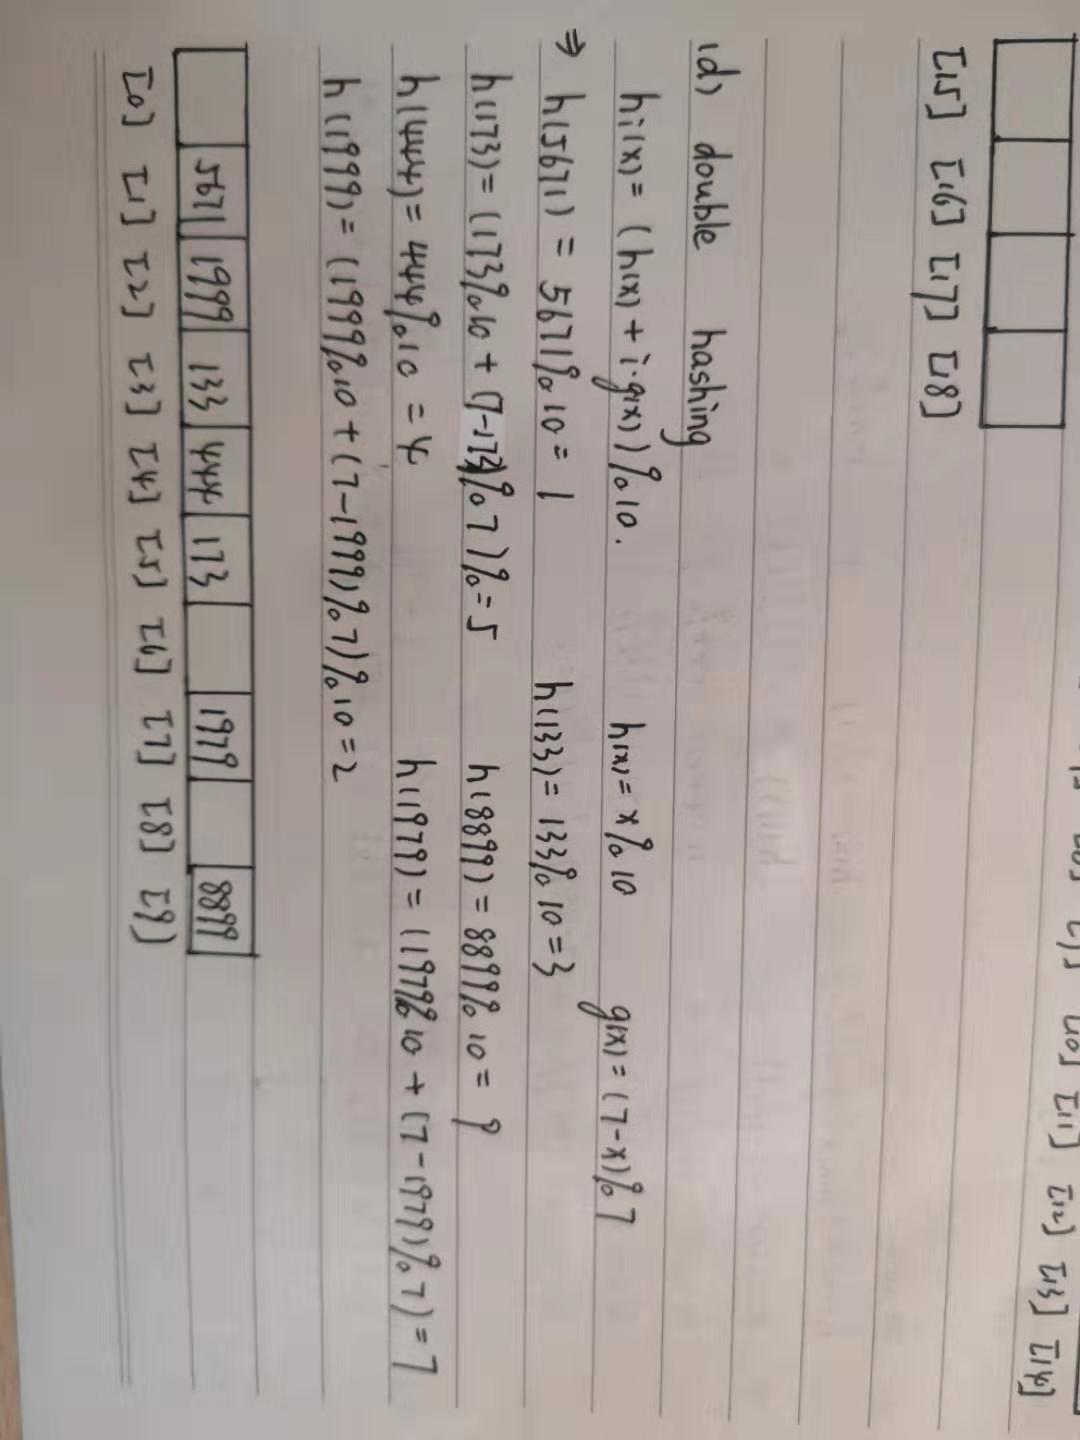 [10] [11] [12] [13] [14]
[15] [16] [17] [18]
(d) double hashing
hi(x) = (h(x) + i·g(x)) % 10. h(x) = x % 10 g(x) = (7-x) % 7
⇒ h(5671) = 5671 % 10 = 1 h(133) = 133 % 10 = 3
h(173) = (173 % 10 + (7-173) % 7) % = 5 h(8899) = 8899 % 10 = 9
h(444) = 444 % 10 = 4 h(1979) = (1979 % 10 + (7-1979) % 7) = 7
h(1999) = (1999 % 10 + (7-1999) % 7) % 10 = 2
5671 1999 133 444 173 1979 8899
[0] [1] [2] [3] [4] [5] [6] [7] [8] [9]